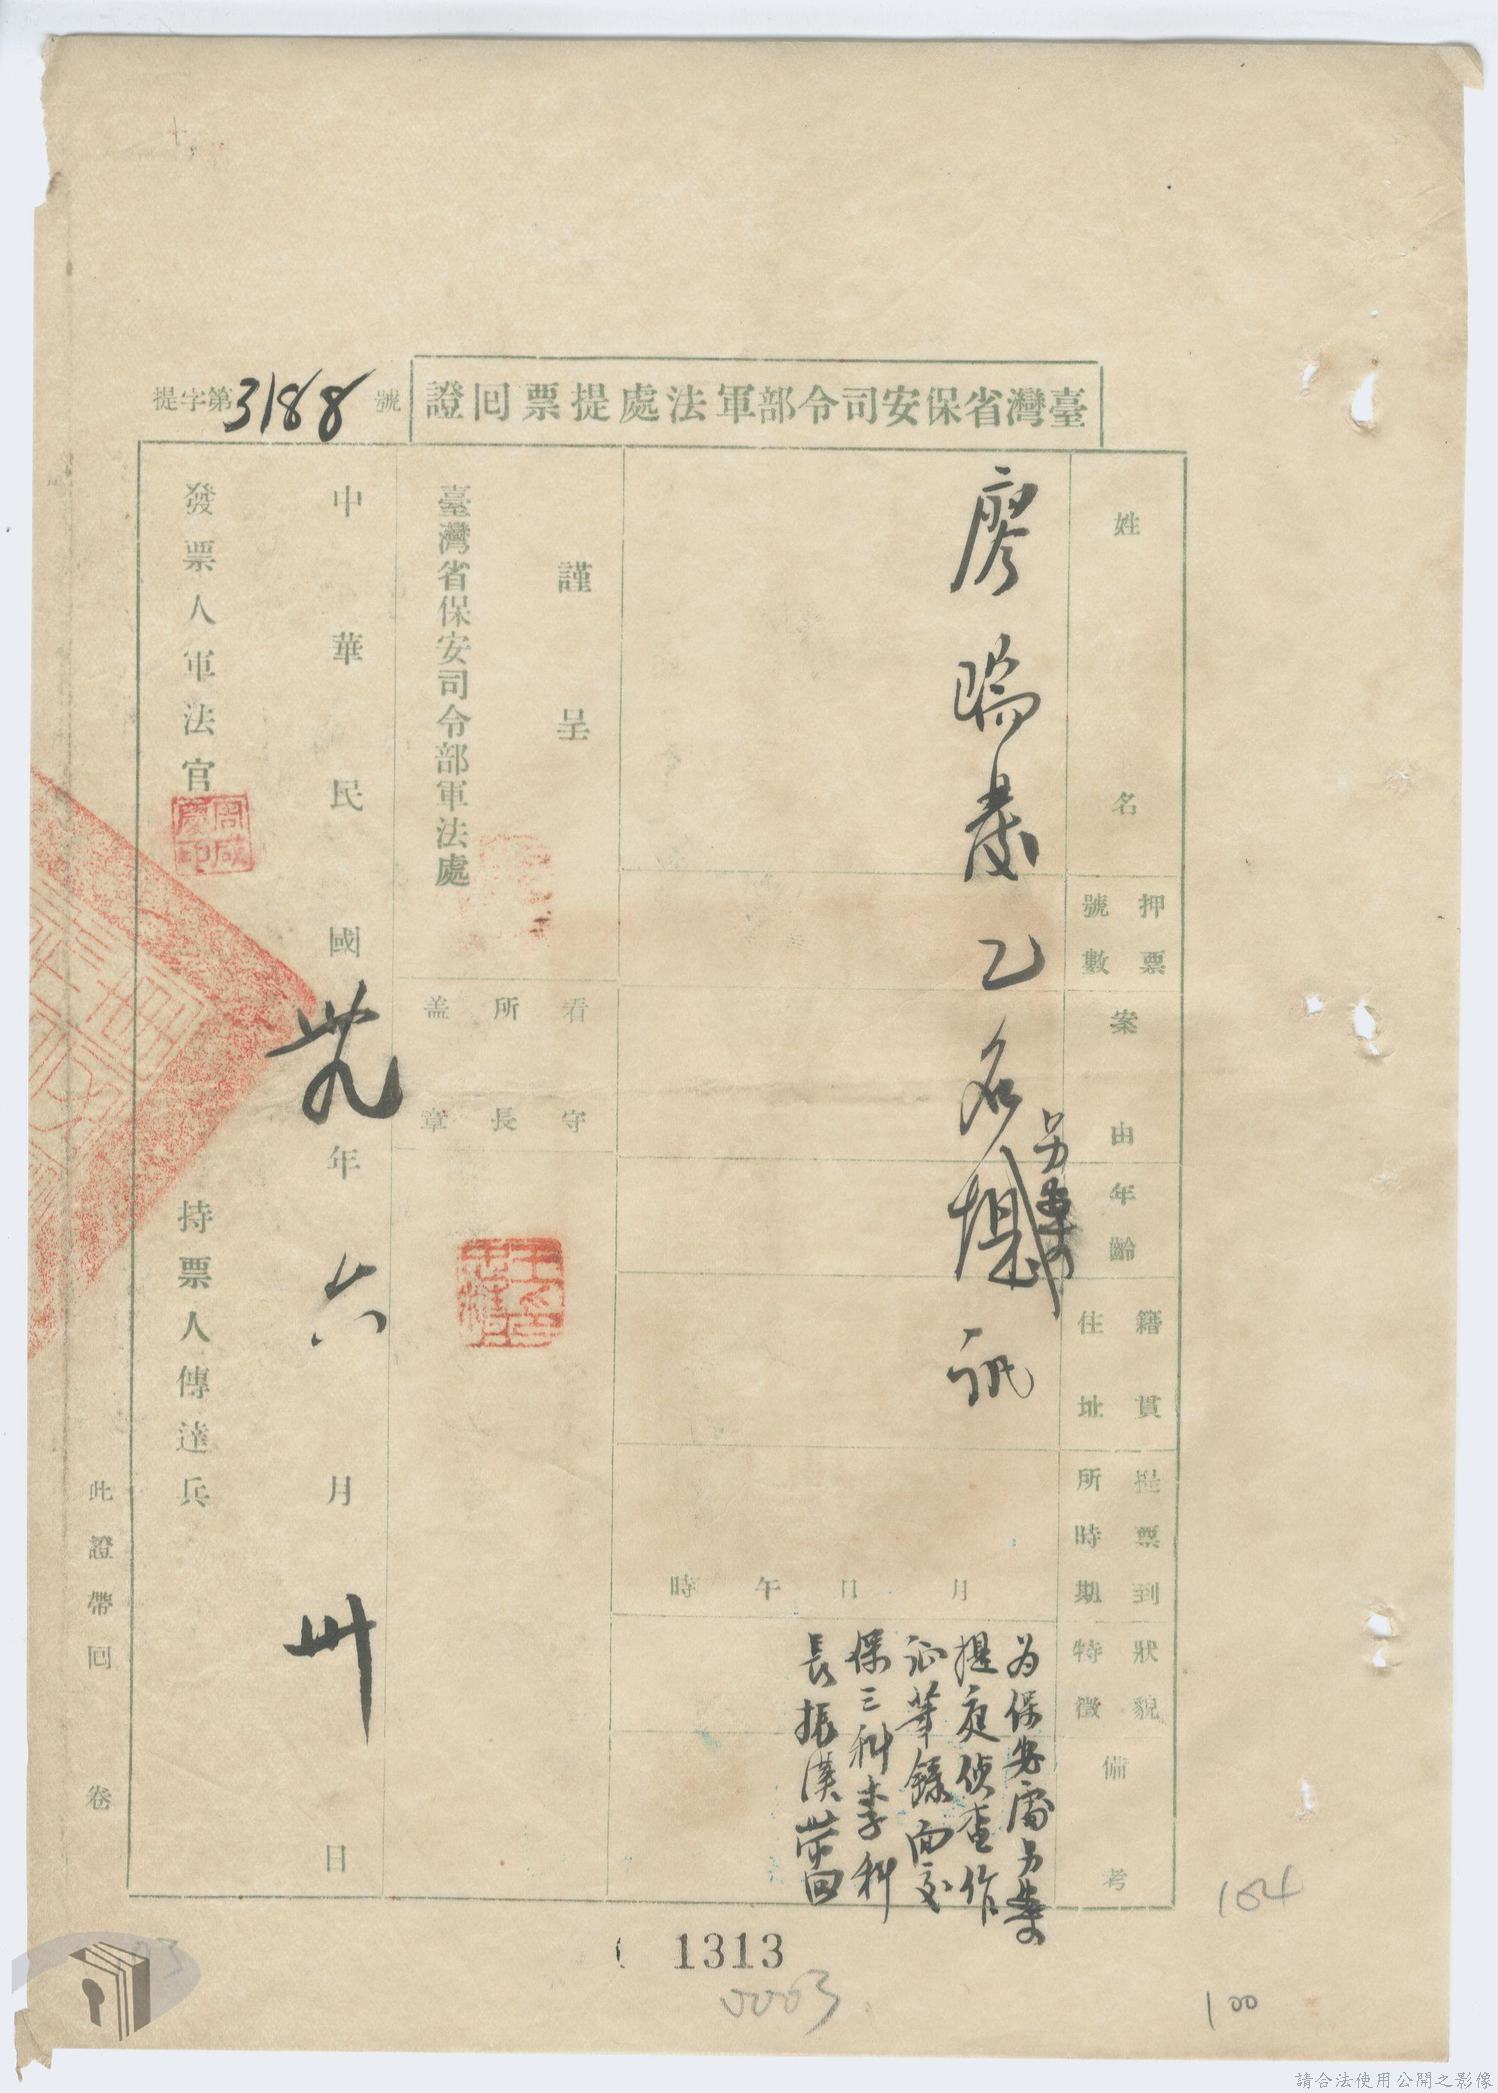 臺灣省保安司令部軍法處提票回證
提字第3188號
姓名
押票號數
案由
年齡
籍貫住址
提票到所時期
狀貌特徵
備考
廖瑞發乙名提訊
另案
月日午時
为保安處另案
提庭偵查作
证筆錄面交
保三科李科
長振漢帶回
謹呈
臺灣省保安司令部軍法處
看守所長盖章
中華民國卅九年六月卅日
發票人軍法官
周咸慶印
持票人傳達兵
此證帶回卷
1313
0003
104
100
請合法使用公開之影像